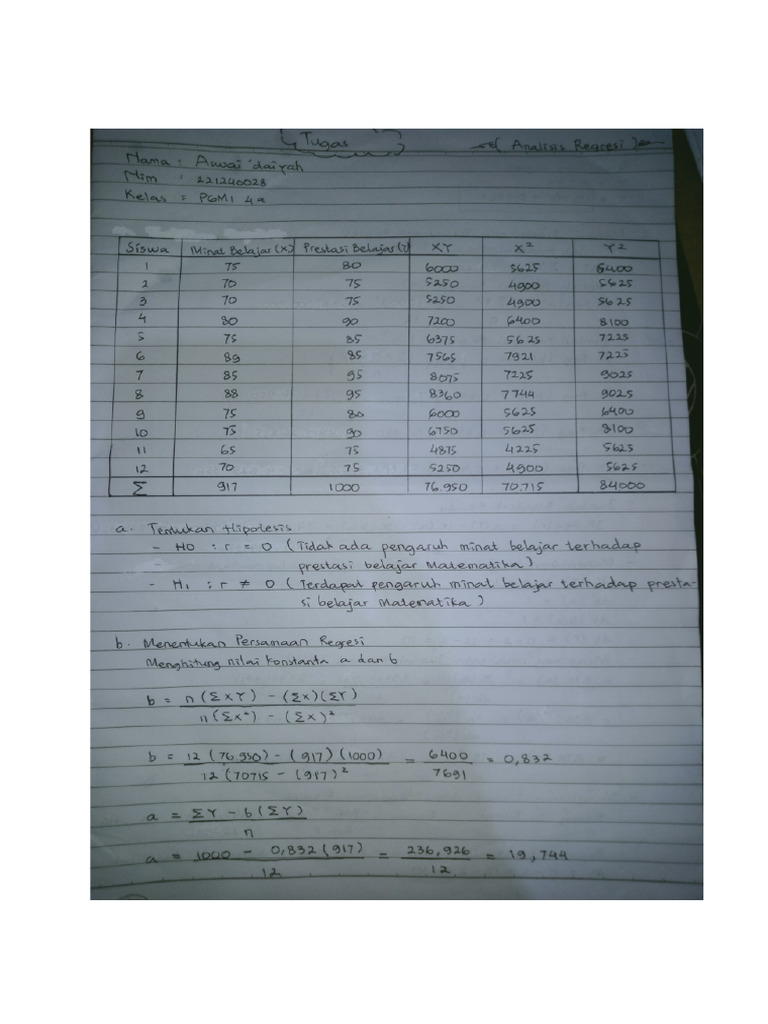 Tugas
( Analisis Regresi )
Nama : Awwai'daiyah
Nim : 221240028
Kelas = PGMI 4a
Siswa Minat Belajar (X) Prestasi Belajar (Y) XY X² Y²
1 75 80 6000 5625 6400
2 70 75 5250 4900 5625
3 70 75 5250 4900 5625
4 80 90 7200 6400 8100
5 75 85 6375 5625 7225
6 89 85 7565 7921 7225
7 85 95 8075 7225 9025
8 88 95 8360 7744 9025
9 75 80 6000 5625 6400
10 75 90 6750 5625 8100
11 65 75 4875 4225 5625
12 70 75 5250 4900 5625
Σ 917 1000 76.950 70.715 84000
a. Tentukan Hipotesis
- H0 : r = 0 ( Tidak ada pengaruh minat belajar terhadap
prestasi belajar Matematika )
- H₁ : r ≠ 0 ( Terdapat pengaruh minat belajar terhadap presta-
si belajar Matematika )
b. Menentukan Persamaan Regresi
Menghitung nilai konstanta a dan b
b = n (ΣXY) - (Σx)(ΣY)
n (Σx²) - (Σx)²
b = 12 (76.950) - (917) (1000) = 6400 = 0,832
12 (70715 - (917)² 7691
a = ΣY - b (ΣY)
n
a = 1000 - 0,832 (917) = 236,926 = 19,744
12 12